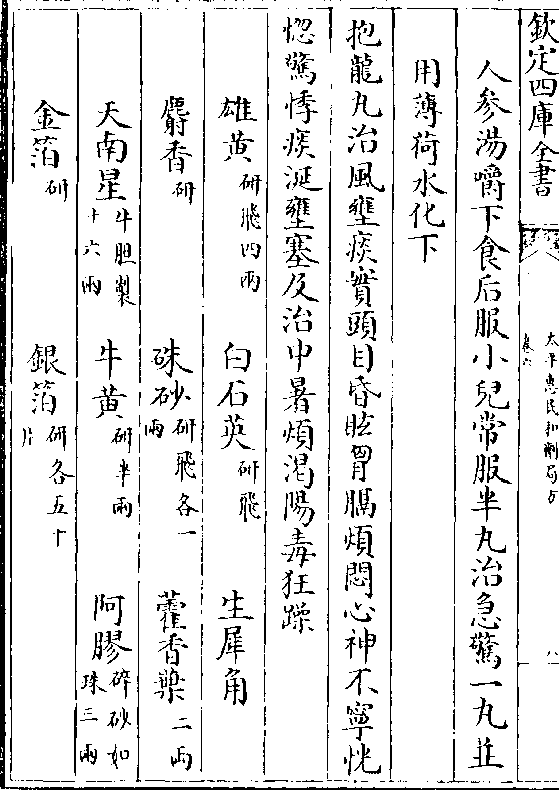 欽定四庫全書
太平惠民和劑局方
卷六
八
人參湯嚼下食后服小兒常服半丸治急驚一丸並
用薄荷水化下
抱龍丸治風壅痰實頭目昏眩胃膈煩悶心神不寧恍
惚驚悸痰涎壅塞及治中暑煩渴陽毒狂躁
雄黃研飛四兩 白石英研飛 生犀角
麝香研 硃砂研飛各一兩 藿香葉二兩
天南星牛胆製十六兩 牛黃研半兩 阿膠碎炒如珠三兩
金箔研 銀箔研各五十片